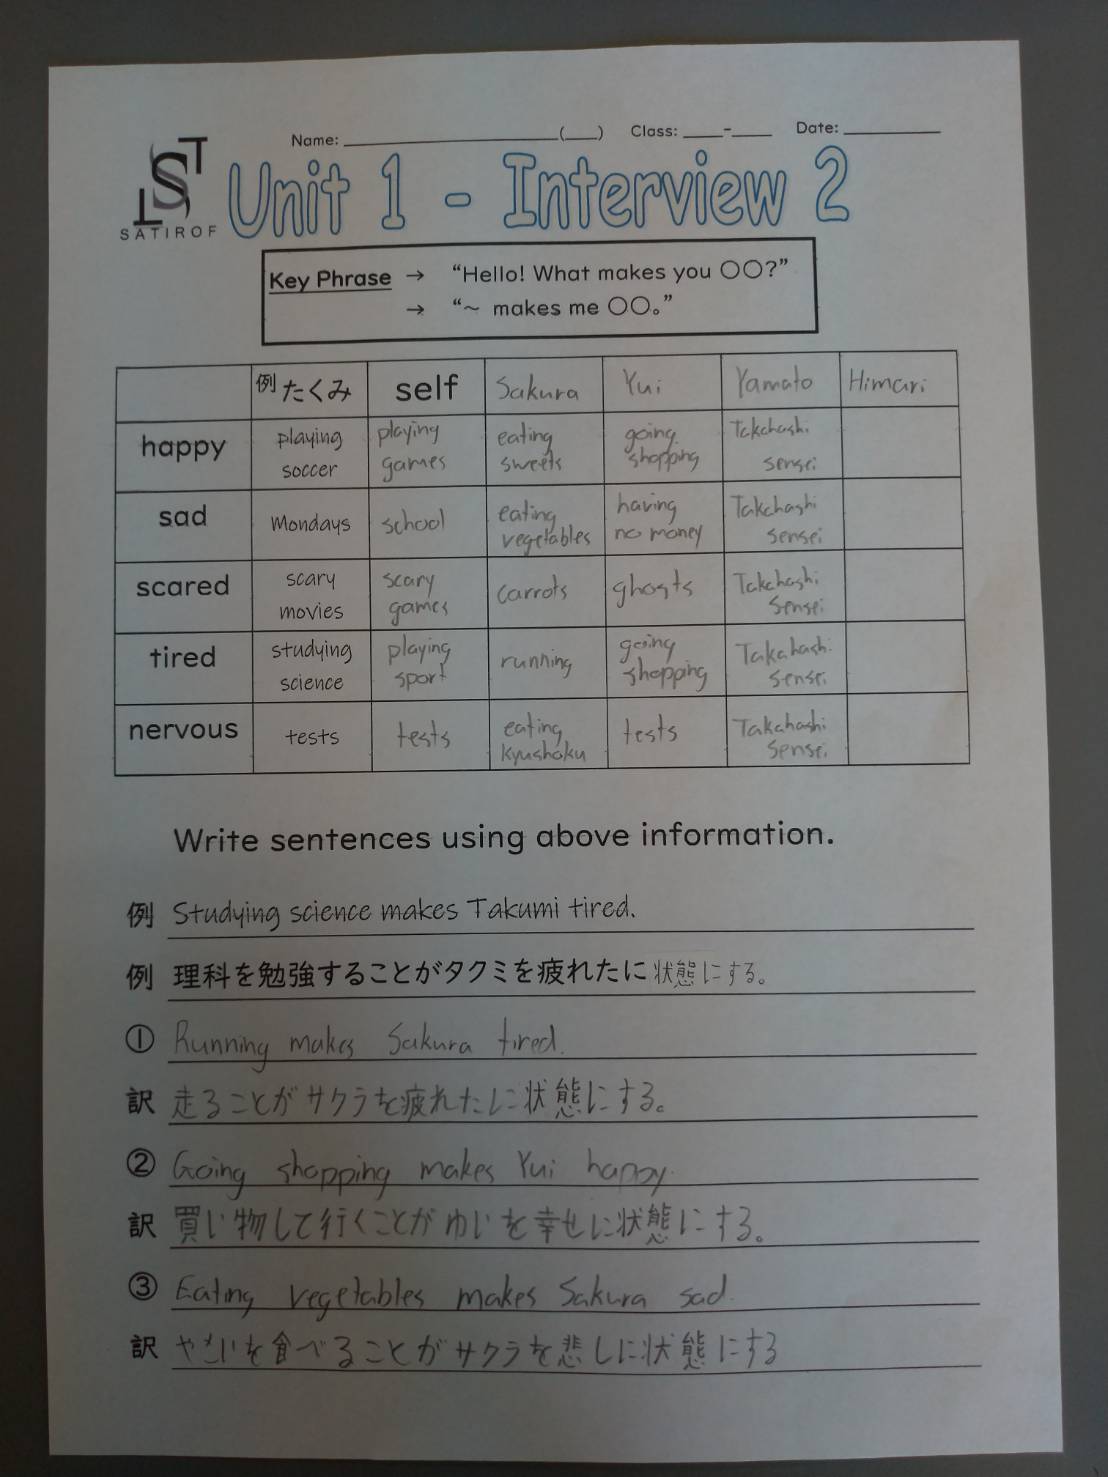 Name: ____________________(___) Class: ____-____ Date: _________
LST
SATIROF
Unit 1 - Interview 2
Key Phrase → “Hello! What makes you ○○?”
→ “～ makes me ○○。”
例 たくみ self Sakura Yui Yamato Himari
happy playing soccer playing games eating sweets going shopping Takahashi sensei
sad Mondays school eating vegetables having no money Takahashi sensei
scared scary movies scary games carrots ghosts Takahashi sensei
tired studying science playing sport running going shopping Takahashi sensei
nervous tests tests eating kyushoku tests Takahashi sensei
Write sentences using above information.
例 Studying science makes Takumi tired.
例 理科を勉強することがタクミを疲れたに状態にする。
① Running makes Sakura tired.
訳 走ることがサクラを疲れたに状態にする。
② Going shopping makes Yui happy.
訳 買い物して行くことがゆいを幸せに状態にする。
③ Eating vegetables makes Sakura sad.
訳 やさいを食べることがサクラを悲しに状態にする